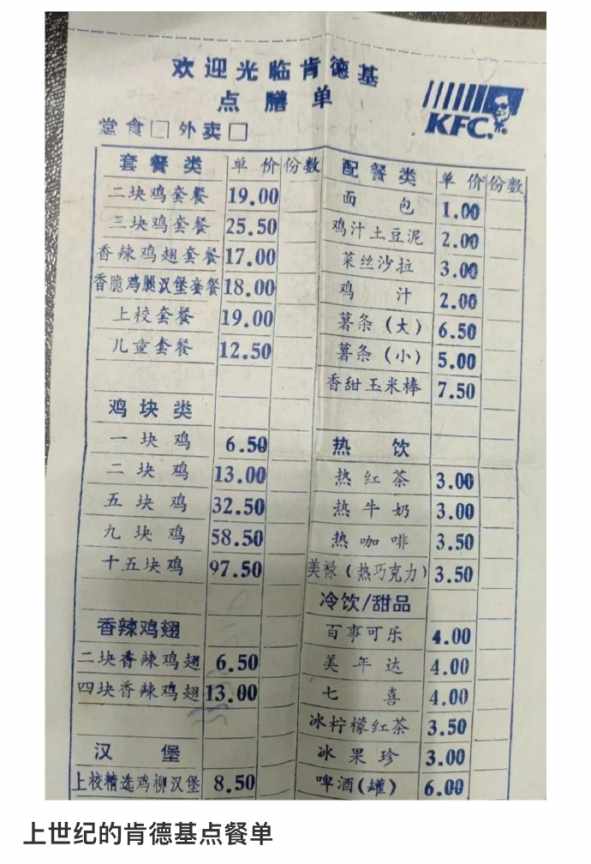 欢迎光临肯德基
点膳单
KFC
堂食□ 外卖□
套餐类 单价 份数
二块鸡套餐 19.00
三块鸡套餐 25.50
香辣鸡翅套餐 17.00
香脆鸡腿汉堡套餐 18.00
上校套餐 19.00
儿童套餐 12.50
鸡块类
一块鸡 6.50
二块鸡 13.00
五块鸡 32.50
九块鸡 58.50
十五块鸡 97.50
香辣鸡翅
二块香辣鸡翅 6.50
四块香辣鸡翅 13.00
汉堡
上校精选鸡柳汉堡 8.50
配餐类 单价 份数
面包 1.00
鸡汁土豆泥 2.00
菜丝沙拉 3.00
鸡汁 2.00
薯条(大) 6.50
薯条(小) 5.00
香甜玉米棒 7.50
热饮
热红茶 3.00
热牛奶 3.00
热咖啡 3.50
美禄(热巧克力) 3.50
冷饮/甜品
百事可乐 4.00
美年达 4.00
七喜 4.00
冰柠檬红茶 3.50
冰果珍 3.00
啤酒(罐) 6.00
上世纪的肯德基点餐单